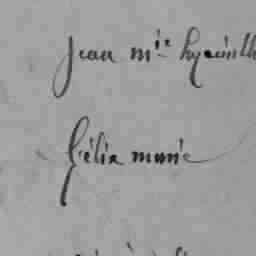 Jean mie hyacinth
Félix marie